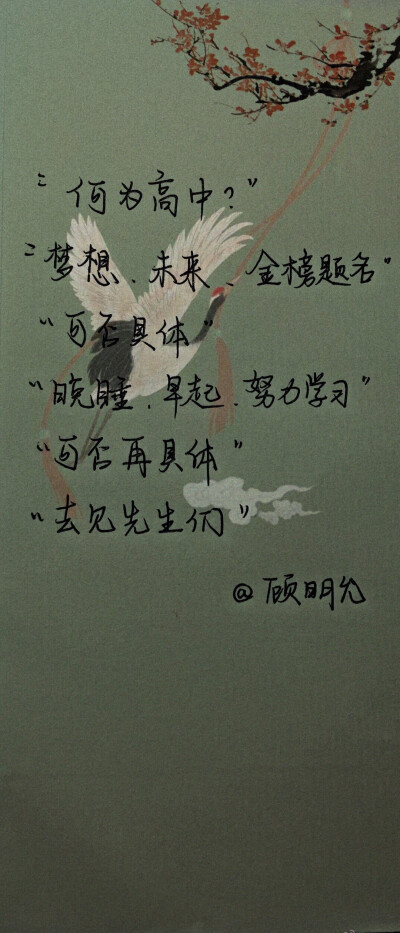 “何为高中？”
“梦想、未来、金榜题名”
“可否具体”
“晚睡、早起、努力学习”
“可否再具体”
“去见先生们”
@顾明允